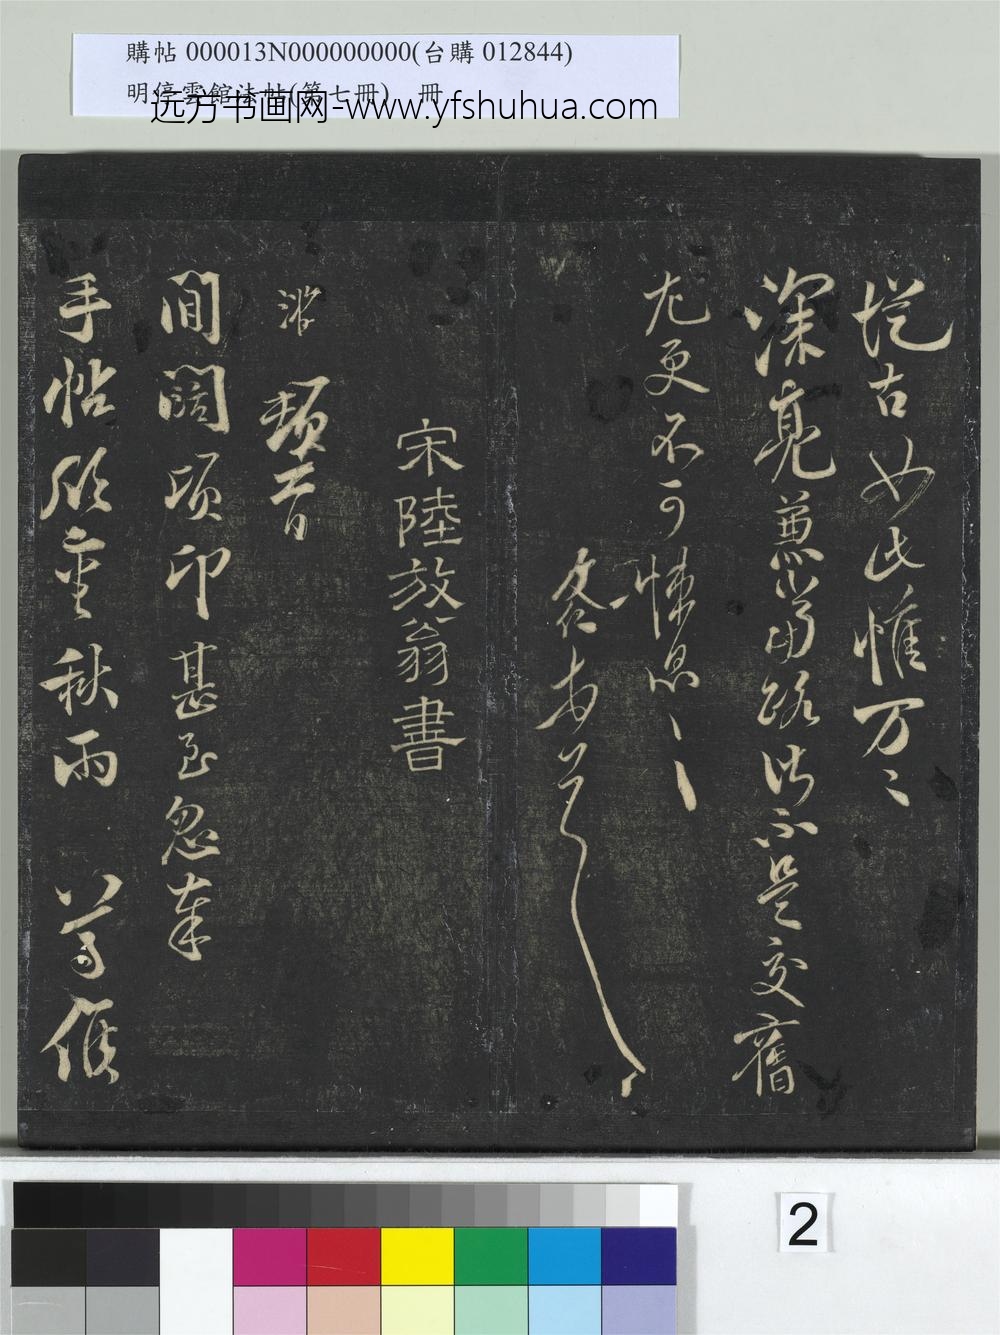 購帖 000013N000000000(台購 012844)
明停雲館法帖(第七冊) 冊
远方书画网-www.yfshuhua.com
古如此惟万〻
深亮兼當用路此不足交舊
尤更不可悚息〻〻
宋陸放翁書
游 頓首
間闊頃卬甚至忽奉
手帖欣重秋雨 尊候
2